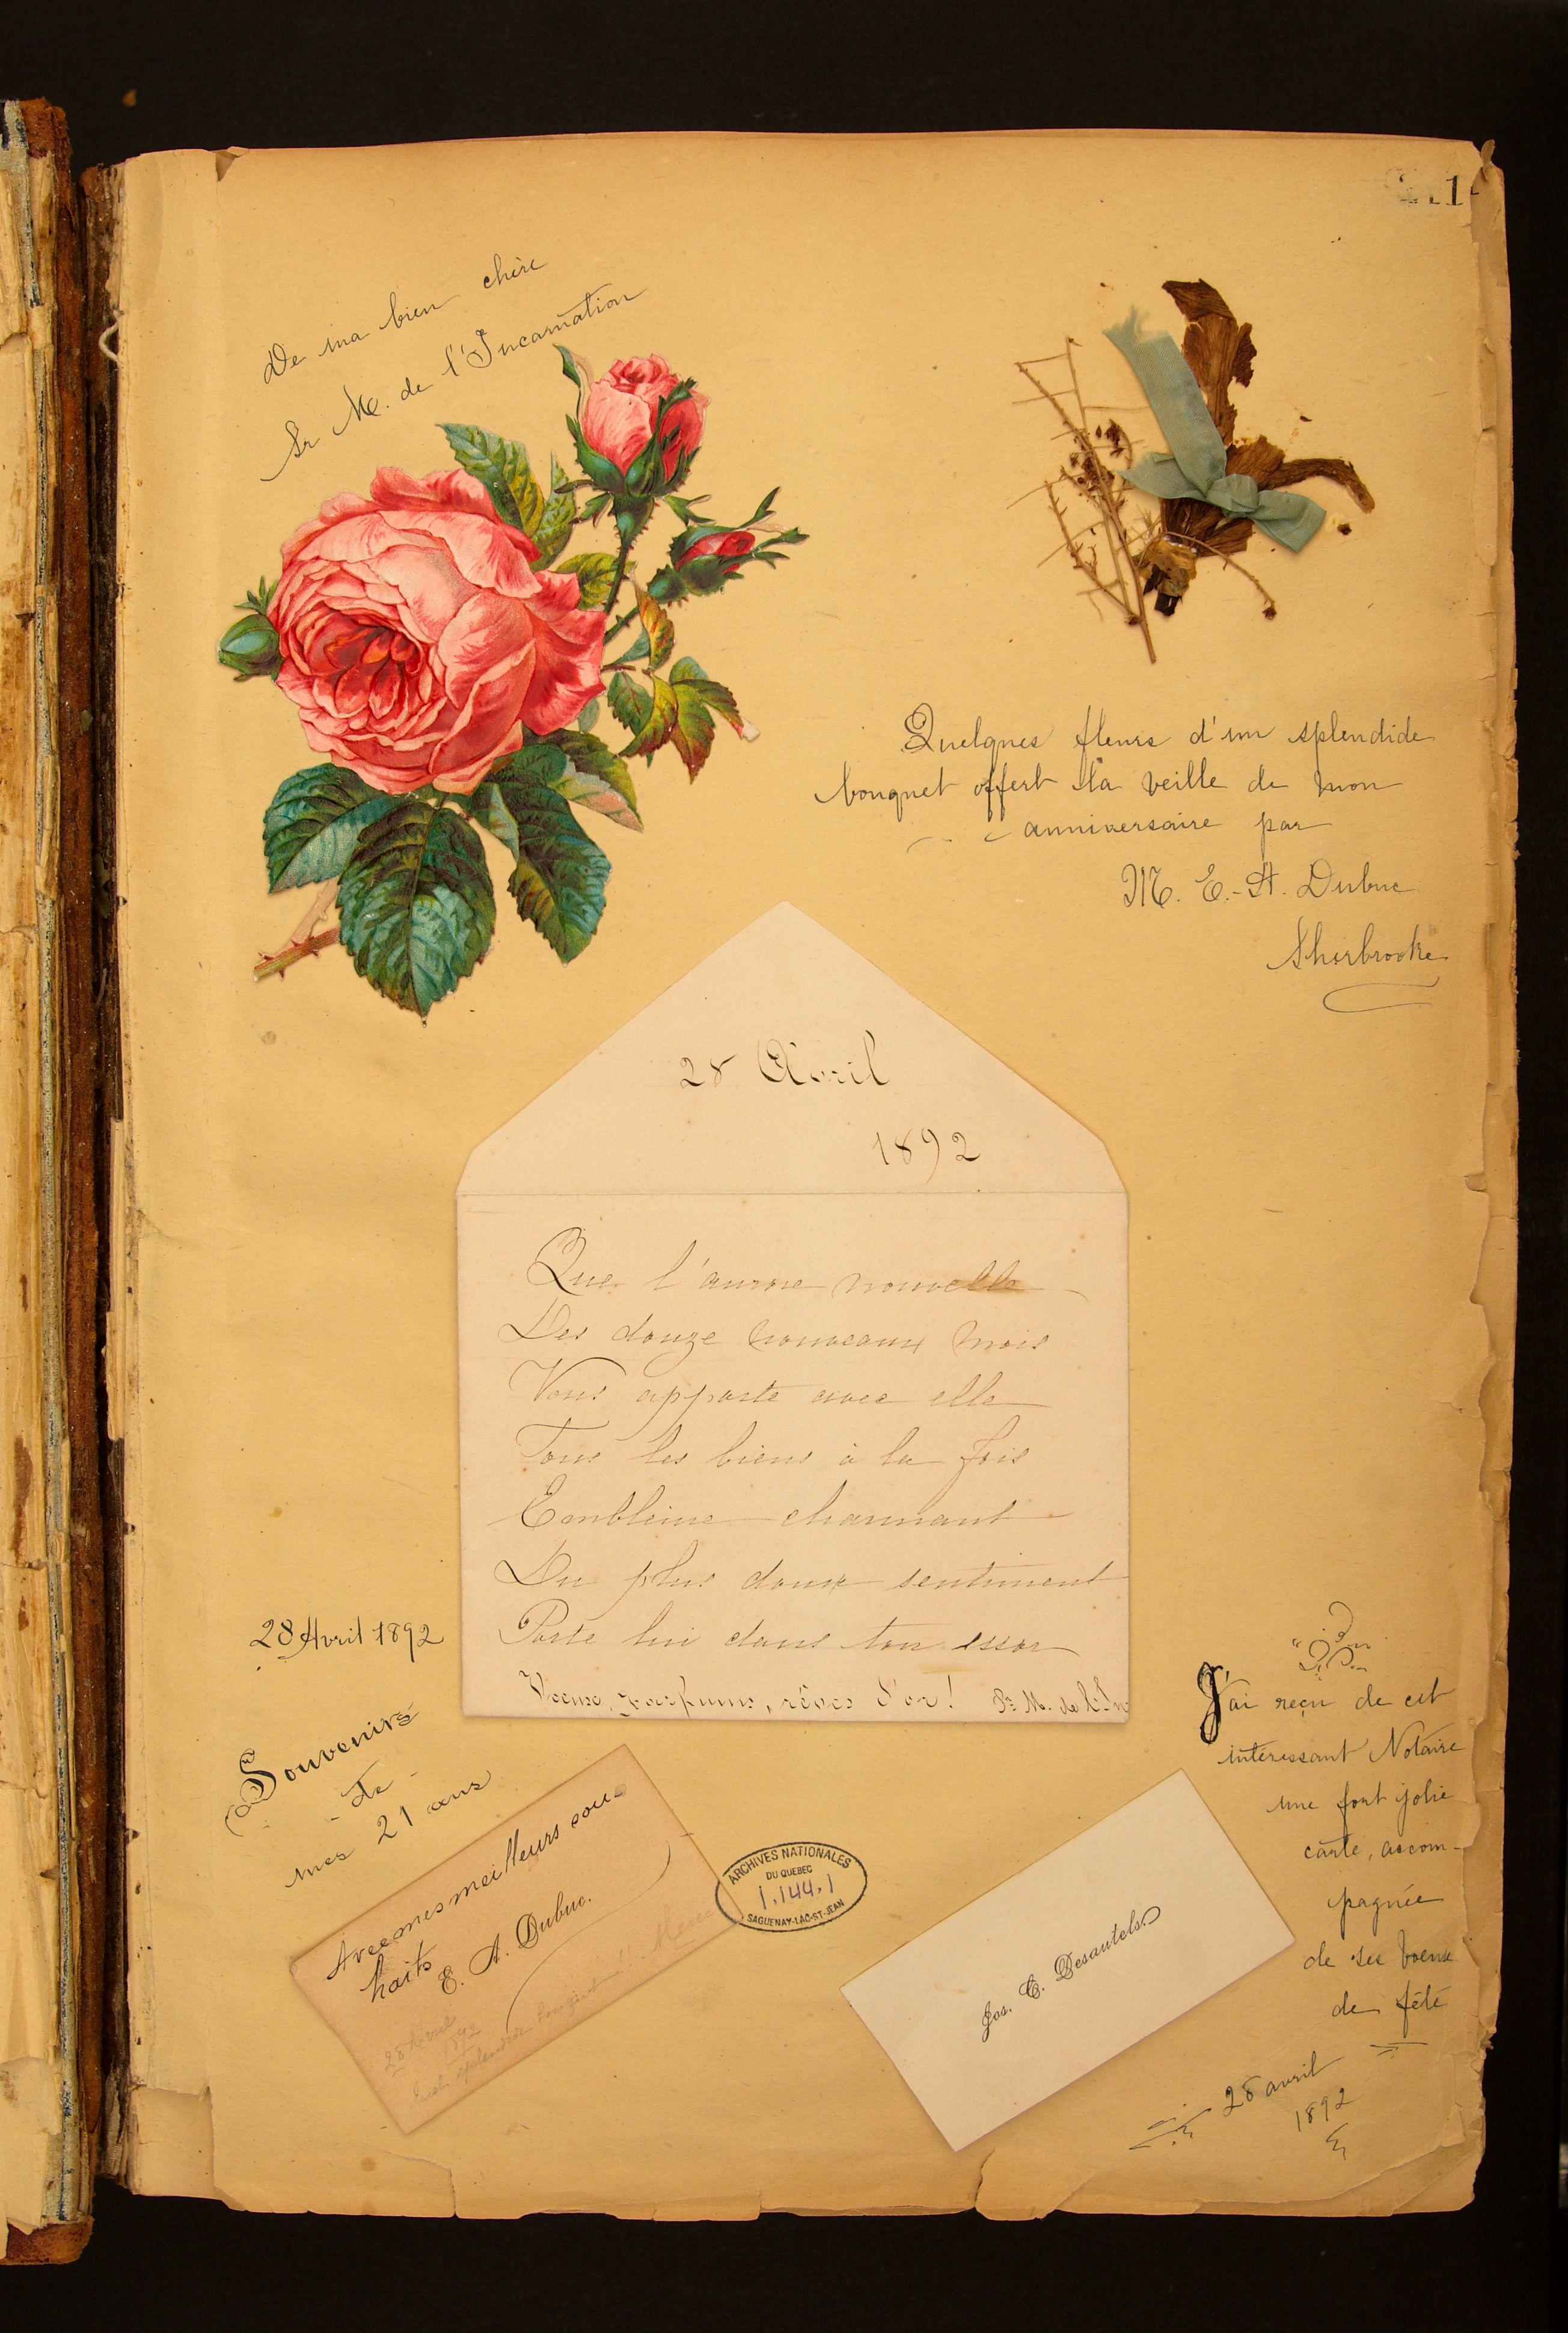 1
De ma bien chère
Sr M. de l'Incarnation
Quelques fleurs d'un splendide
bouquet offert la veille de mon
anniversaire par
M. E.-A. Dubuc
Sherbrooke
28 Avril
1892
Que l'aurore nouvelle
Des douze nouveaux mois
Vous apporte avec elle
Tous les biens à la fois
Emblème charmant
Du plus doux sentiment
Porte lui dans ton essor
Voeux, parfums, rêves d'or! Sr M. de l'In
28 Avril 1892
Souvenirs
de
mes 21 ans
Avec mes meilleurs sou-
haits
E. A. Dubuc.
28 Avril
1892
ARCHIVES NATIONALES
DU QUEBEC
1.144.1
SAGUENAY-LAC-ST-JEAN
Jos. C. Desautels
J'ai reçu de cet
intéressant Notaire
une fort jolie
carte, accom-
pagnée
de ses voeux
de fête
28 avril
1892